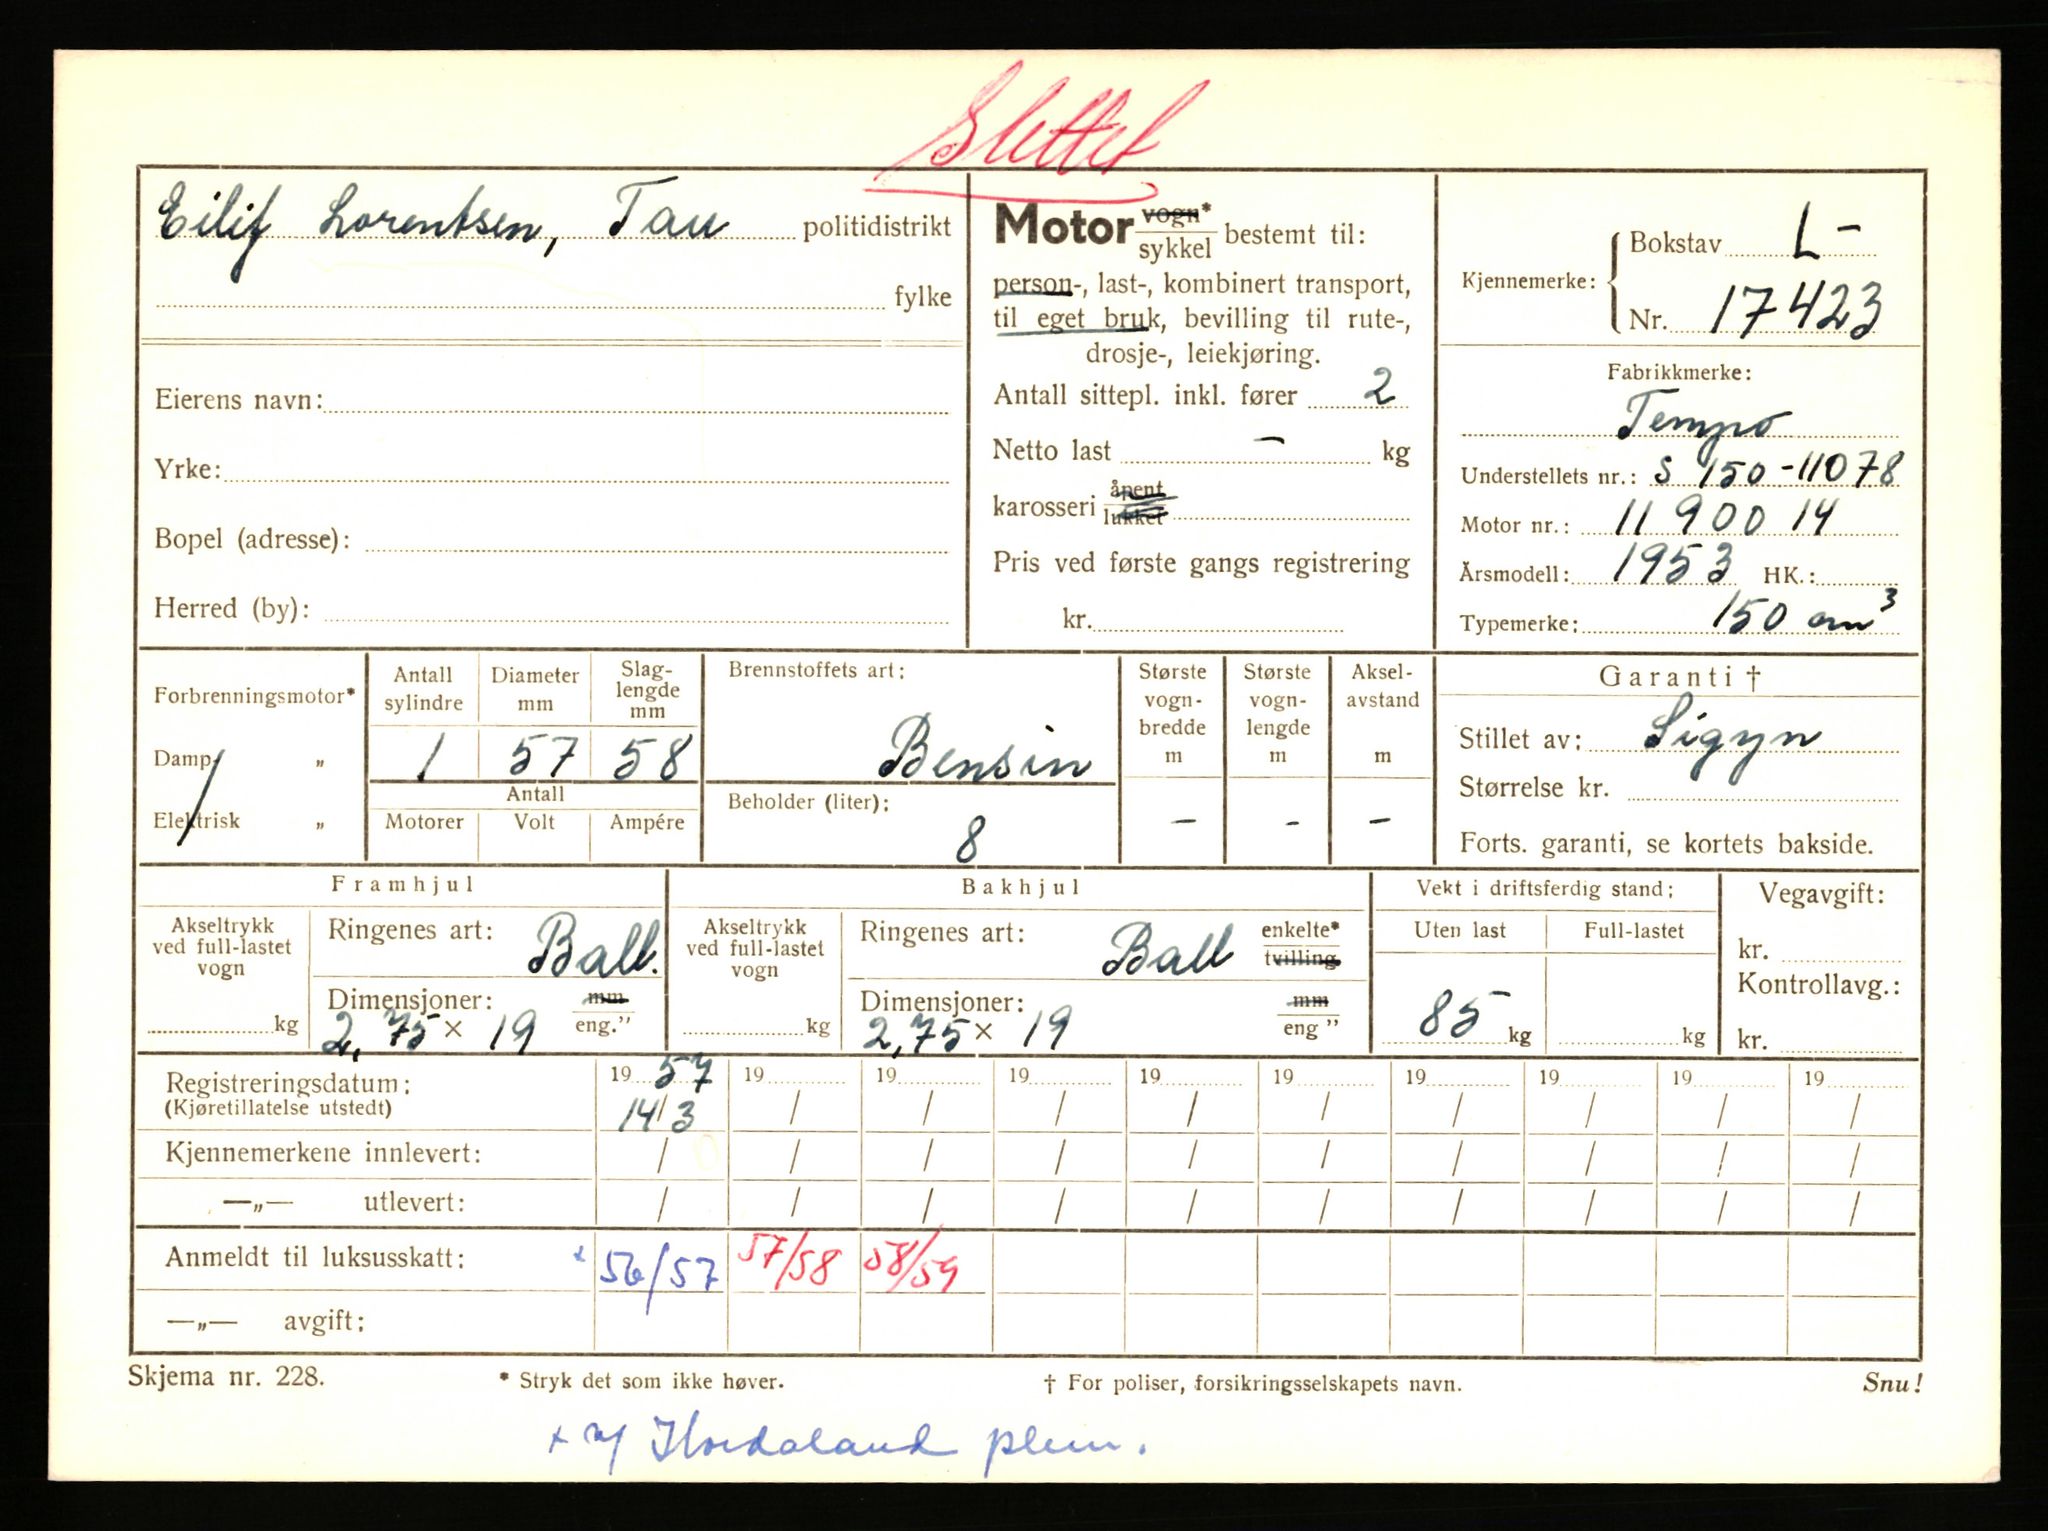 Slettet
Eilif Lorentsen, Tau politidistrikt
fylke
Eierens navn:
Yrke:
Bopel (adresse):
Herred (by):
Motor vogn* sykkel bestemt til:
person-, last-, kombinert transport,
til eget bruk, bevilling til rute-,
drosje-, leiekjøring.
Antall sittepl. inkl. fører 2
Netto last – kg
karosseri åpent lukket
Pris ved første gangs registrering
kr.
Kjennemerke: Bokstav L-
Nr. 17423
Fabrikkmerke:
Tempo
Understellets nr.: S 150-11078
Motor nr.: 11 900 14
Årsmodell: 1953 HK.:
Typemerke: 150 cm³
Forbrenningsmotor*
Damp „
Elektrisk „
Antall sylindre
Diameter mm
Slag-lengde mm
1 57 58
Antall
Motorer Volt Ampére
Brennstoffets art:
Bensin
Beholder (liter):
8
Største vogn-bredde m
–
Største vogn-lengde m
–
Aksel-avstand m
–
Garanti †
Stillet av: Sigyn
Størrelse kr.
Forts. garanti, se kortets bakside.
Framhjul
Akseltrykk ved full-lastet vogn
kg
Ringenes art: Ball.
Dimensjoner: mm
2,75 × 19 eng."
Bakhjul
Akseltrykk ved full-lastet vogn
kg
Ringenes art: Ball enkelte* tvilling
Dimensjoner: mm
2,75 × 19 eng "
Vekt i driftsferdig stand:
Uten last Full-lastet
85 kg kg
Vegavgift:
kr.
Kontrollavg.:
kr.
Registreringsdatum: 19 57 19 19 19 19 19 19 19 19 19
(Kjøretillatelse utstedt) 14/3 / / / / / / / / /
Kjennemerkene innlevert: / / / / / / / / / /
—„— utlevert: / / / / / / / / / /
Anmeldt til luksusskatt: x 56/57 57/58 58/59
—„— avgift:
Skjema nr. 228. * Stryk det som ikke høver. † For poliser, forsikringsselskapets navn. Snu!
+ Hordaland